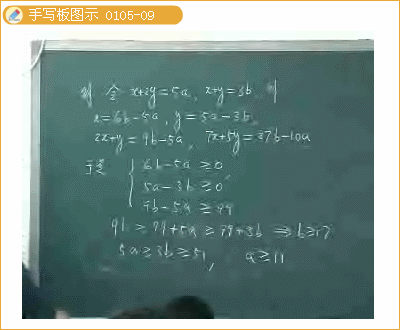 手写板图示 0105-09
令 x+2y=5a, x+y=3b, 则
x=6b-5a, y=5a-3b,
2x+y=9b-5a, 7x+5y=27b-10a
于是 { 6b-5a≥0
5a-3b≥0
9b-5a≥99
9b≥99+5a≥99+3b ⇒ b≥17
5a≥3b≥51, a≥11